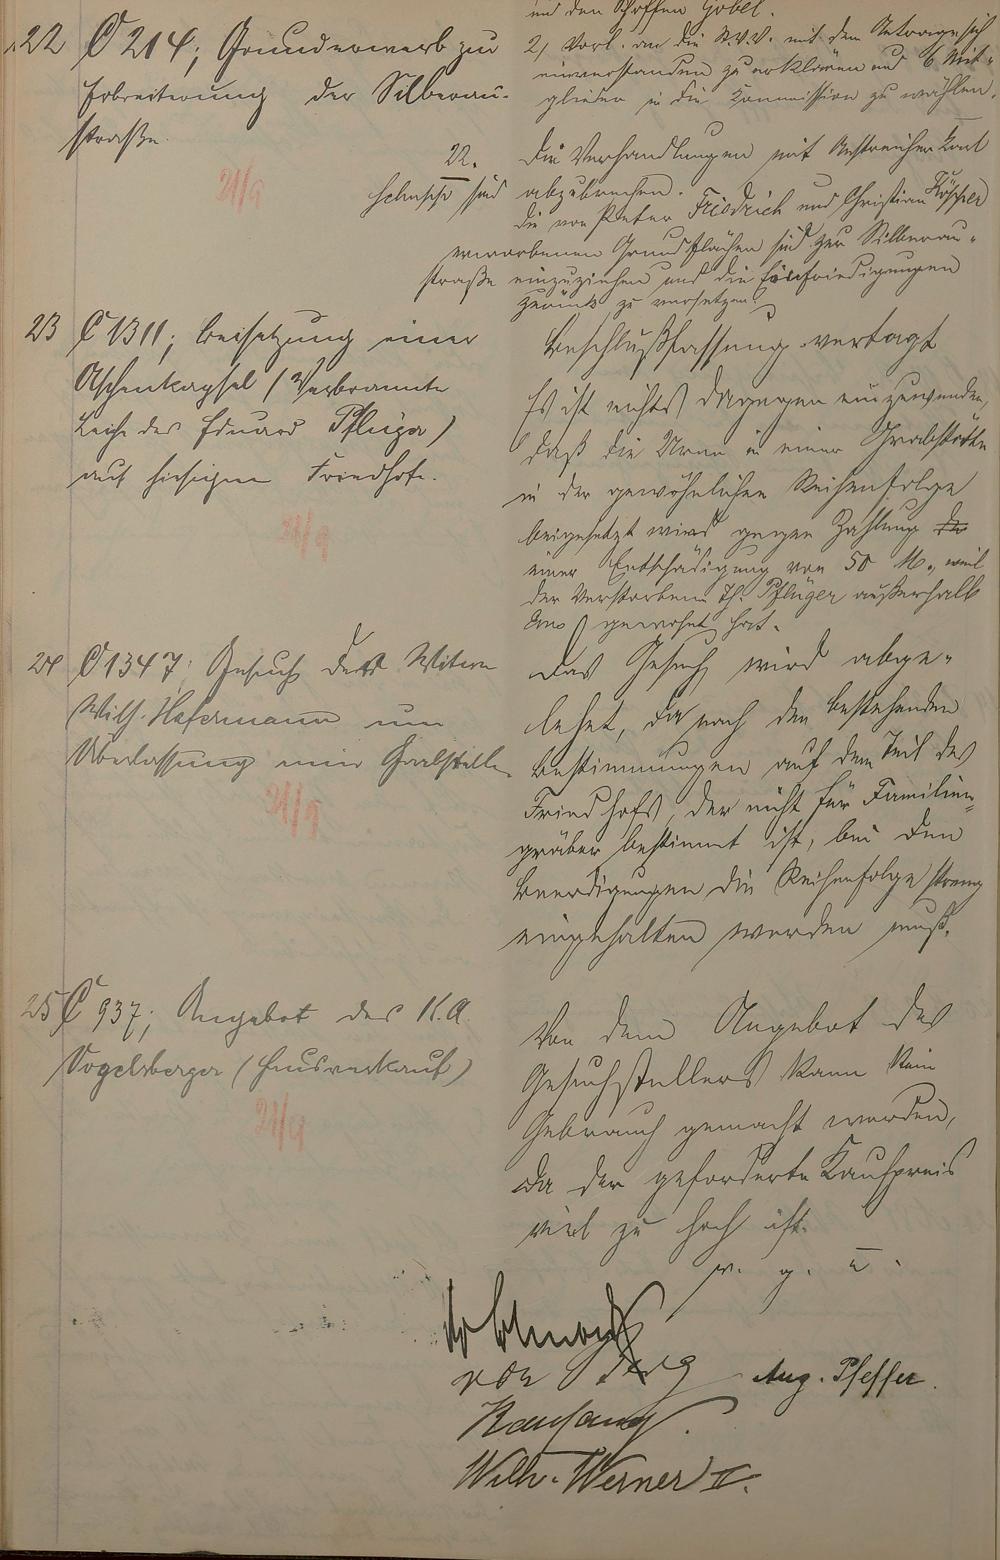 und den Schöffen Göbel.
2) Vorl. an die St.V.V. mit dem Antrage sich
einverstanden zu erklären und 6 Mit-
glieder in die Kommission zu wählen.
22 C 214; Grunderwerb zur
Erbreiterung der Silberau-
straße.
21/9
22. Die Verhandlungen mit Anstreicher Karl
sind abzubrechen.
Die von Peter Friedrich und Christian
erworbenen Grundflächen sind zur Silberau-
straße einzuziehen und die Einfriedigungen
zurück zu versetzen.
23 C 1311; Beisetzung einer
Aschenkapsel (Verbrannte
Leiche des Eduard Pflüger)
auf hiesigem Friedhofe.
21/9
Beschlußfassung vertagt
Es ist nichts dagegen einzuwenden,
daß die Urne in einer Grabstätte
in der gewöhnlichen Reihenfolge
beigesetzt wird gegen Zahlung der
einer Entschädigung von 50 M., weil
der Verstorbene Pflüger außerhalb
gewohnt hat.
24 C 1347; Gesuch der Witwe
Wilh. Hafermann um
Überlassung einer Grabstelle
21/9
Das Gesuch wird abge-
lehnt, da nach den bestehenden
Bestimmungen auf dem Teil des
Friedhofs, der nicht für Familien-
gräber bestimmt ist, bei den
Beerdigungen die Reihenfolge streng
eingehalten werden muß.
25 C 937; Angebot des K.A.
Vogelsberger (Hausverkauf)
21/9
Von dem Angebot des
Gesuchstellers kann kein
Gebrauch gemacht werden,
da der geforderte Kaufpreis
viel zu hoch ist.
v. g. u.
von Aug. Pfeffer.
Kaufang
Wilh. Werner II.